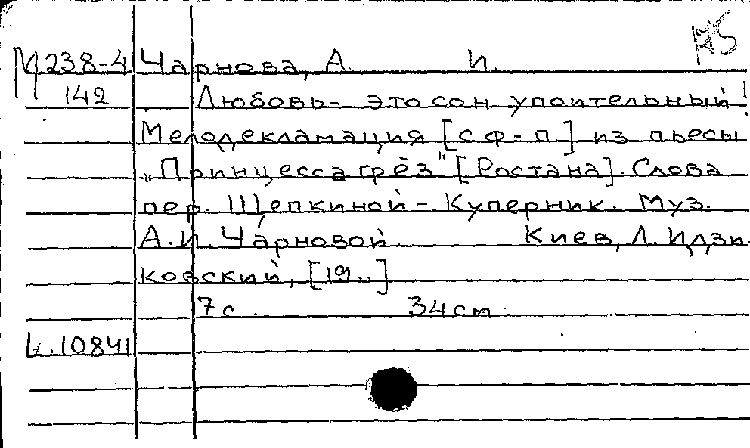 М 238-4 Чарнова, А. И.
142 Любовь - это сон упоительный!
Мелодекламация [с ф-п] из пьесы
„Принцесса грёз" [Ростана]. Слова
пер. Щепкиной-Куперник. Муз.
А.И. Чарновой. Киев, Л. Идзи
ковский, [19..]
7 с. 34 см
к. 10841